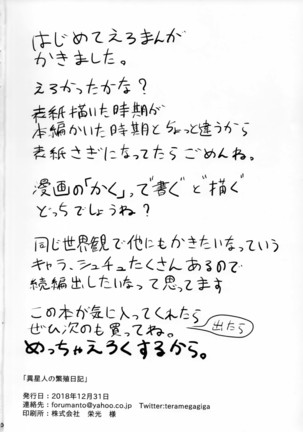 はじめてえろまんが
かきました。
えろかったかな？
表紙描いた時期が
本編かいた時期とちょっと違うから
表紙さぎになってたらごめんね。
漫画の「かく」って「書く」と「描く」
どっちでしょうね？
同じ世界観で他にもかきたいなっていう
キャラ、シュチュたくさんあるので
続編出したいなって思ってます
この本が気に入ってくれたら
ぜひ次のも買ってね。
出たら
めっちゃえろくするから。
「異星人の繁殖日記」
発行日：2018年12月31日
連絡先：forumanto@yahoo.co.jp Twitter:teramegagiga
印刷所：株式会社 栄光 様